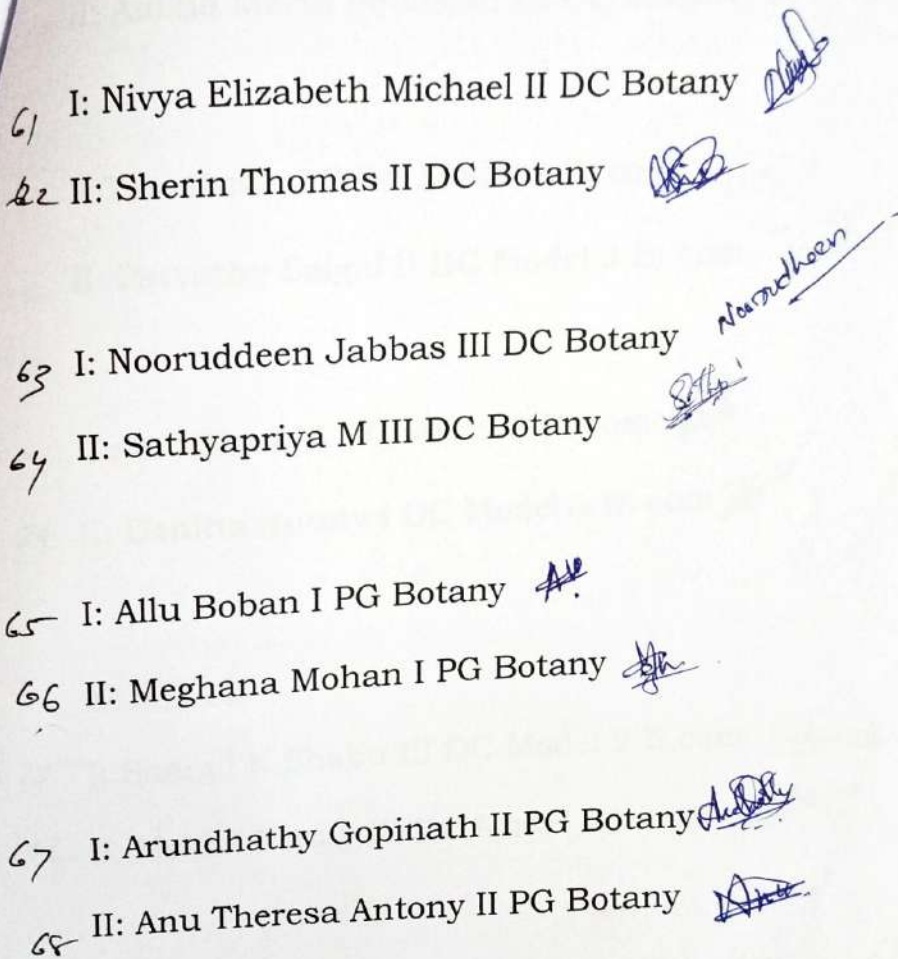 61 I: Nivya Elizabeth Michael II DC Botany
62 II: Sherin Thomas II DC Botany
63 I: Nooruddeen Jabbas III DC Botany Noorudheen
64 II: Sathyapriya M III DC Botany
65 I: Allu Boban I PG Botany
66 II: Meghana Mohan I PG Botany
67 I: Arundhathy Gopinath II PG Botany
68 II: Anu Theresa Antony II PG Botany